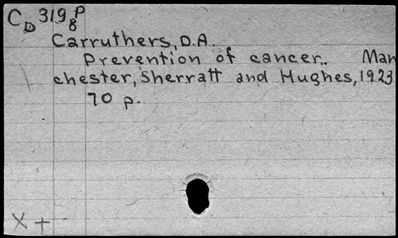 CD 319 P
8
Carruthers, D.A.
Prevention of cancer.. Man
chester, Sherratt and Hughes, 1923
70 p.
X +